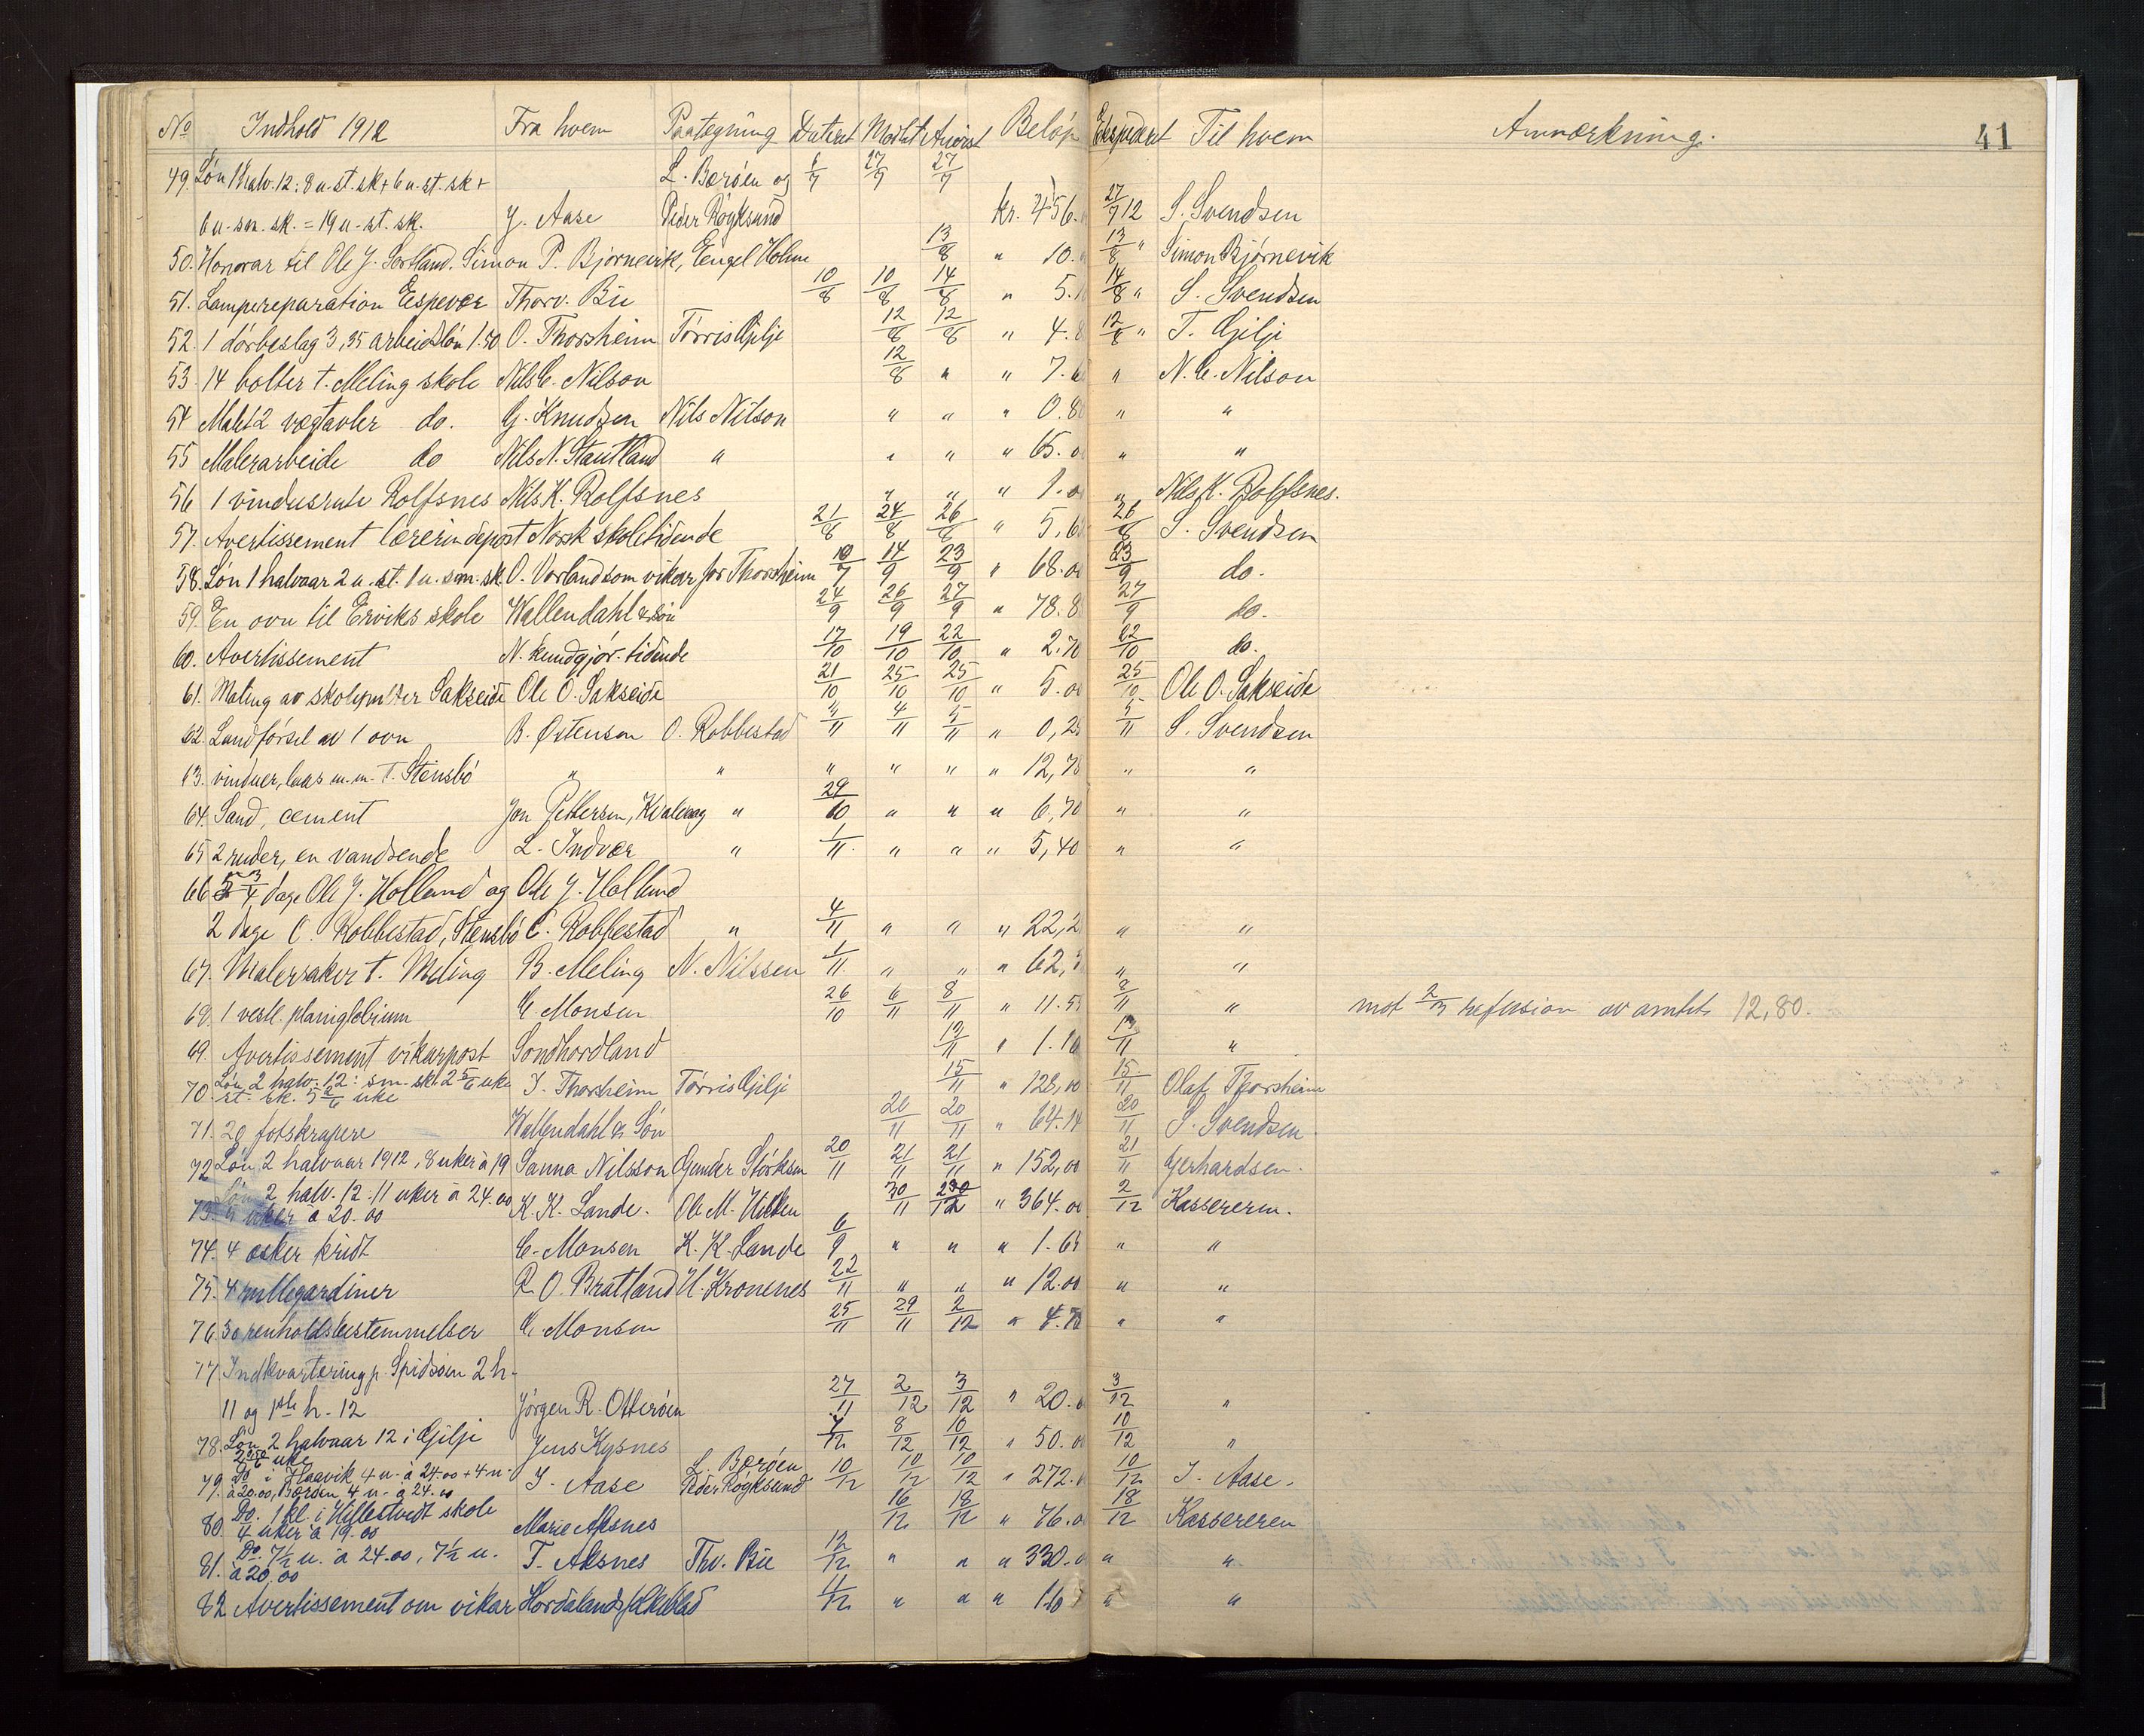 No Indhold 1912 Fra hvem Paategning Datert Modtat Anvist Beløp Ekspedert Til hvem Anmerkning. 41
49. Løn 1 halv. 12: 8 u. st. sk + 6 u. st. sk + L. Børøen og 27/7 27/7
6 u. sm. sk. = 19 u. st. sk. J. Aase Peder Røyksund kr. 456. 27/7 12 S. Svendsen
50. Honorar til Ole J. Sortland. Simon P. Bjørnevik, Engel Holme 13/8 " 10. 13/8 " Simon Bjørnevik
51. Lampereparation Espevær Thorv. Bie 10/8 10/8 14/8 " 5. 14/8 " S. Svendsen
52. 1 dørbeslag 3,35 arbeidsløn 1.50 O. Thorsheim Tørris Gilje 12/8 12/8 " 4.8 12/8 " T. Gilje
53. 14 bolter t. Meling skole Nils C. Nilson 12/8 " " 7. " N. C. Nilson
54 Malt 2 vegtavler do. G. Knudsen Nils Nilson " " " 0.8 " "
55 Malerarbeide do Nils N. Stautland " " " " 65.0 " "
56 1 vindusrute Rolfsnes Nils K. Rolfsnes " " " 1.0 " Nils K. Rolfsnes.
57. Avertissement lærerindepost Norsk skoletidende 21/8 24/8 26/8 " 5,6 26/8 S. Svendsen
58. Løn 1 halvaar 2 u. st. 1 u. sm. sk. O. Vorland som vikar for Thorsheim 10/7 14/9 23/9 " 68.00 23/9 do.
59. En ovn til Erviks skole Wallendahl & søn 24/9 26/9 27/9 " 78.8 27/9 do.
60. Avertissement N. kundgjør. tidende 17/10 19/10 22/10 " 2.70 22/10 do.
61. Maling av skolepulter Sakseide Ole O. Sakseide 21/10 25/10 25/10 " 5.00 25/10 Ole O. Sakseide
62. Landførsel av 1 ovn B. Østensen O. Robbestad 4/11 4/11 5/11 " 0,25 5/11 S. Svendsen
63. vinduer, laas m.m. T. Stensbø " " " " " " 12,78 " "
64. Sand, cement Jon Pettersen, Kvalvaag " 29/10 " " " 6,70 " "
65 2 ruder, en vandsende L. Indvær " 1/11. " " " 5,40 " "
66 3/4 dage Ole J. Holland og Ole J. Holland
2 dage C. Robbestad, Stensbø C. Robbestad " 4/11 " " " 22,2 " "
67. Malersaker t. Meling B. Meling N. Nilssen 1/11. " " " 62, " "
68. 1 vestl. planiglobium C. Monsen 26/10 6/11 8/11 " 11.55 8/11 " mot 2/3 refusion av amtet. 12,80.
69. Avertissement vikarpost Søndhordland 13/11 " 1.10 13/11 "
70. Løn 2 halv. 12: sm. sk. 2 5/6 uke
st. sk. 5 2/6 uke I. Thorsheim Tørris Gilje 15/11 " 128,00 15/11 Olaf Thorsheim
71. 20 fotskrapere Wallendahl & Søn 20/11 20/11 " 64.14 20/11 S. Svendsen.
72 Løn 2 halvaar 1912, 8 uker à 19 Sanna Nilsson Gunder Størksen 20/11 21/11 21/11 " 152,00 21/11 Gerhardsen.
Løn 2 halv. 12. 11 uker à 24.00
73. 5 uker à 20.00 K. K. Lande. Ole M. 30/11 2/12 " 364.00 2/12 Kassereren.
74. 4 esker kridt C. Monsen K. K. Lande 6/9 " " " 1.65 " "
75. 4 rullegardiner R. O. Bratland H. Kronenes 22/11 " " " 12.00 " "
76. 30 renholdsbestemmelser C. Monsen 25/11 29/11 2/12 " 4.70 " "
77. Indkvartering p. Spidsøen 2 h.
11 og 1ste h. 12 Jørgen R. Otterøen 27/11 2/12 3/12 " 20. 3/12 "
78. Løn 2 halvaar 12 i Gilje
2 uke Jens Kysnes 7/12 8/12 10/12 " 50.0 10/12 "
79. Do i Haavik 4 u. à 24.00 + 4 u.
à 20.00, Børøen 4 u. à 24.00 I. Aase L. Børøen Peder Røyksund 10/12 10/12 10/12 " 272. 10/12 I. Aase.
80. Do. 1 kl. i Hillestvedt skole
4 uker à 19.00 Marie Aksnes 16/12 18/12 " 76.0 18/12 Kassereren
81. Do. 7½ u. à 24.00, 7½ u.
à 20.00 T. Aksnes Thv. Bie 12/12 " " " 330. " "
82 Avertissement om vikar Hordalands folkeblad 11/12 " " " 1.6 " "